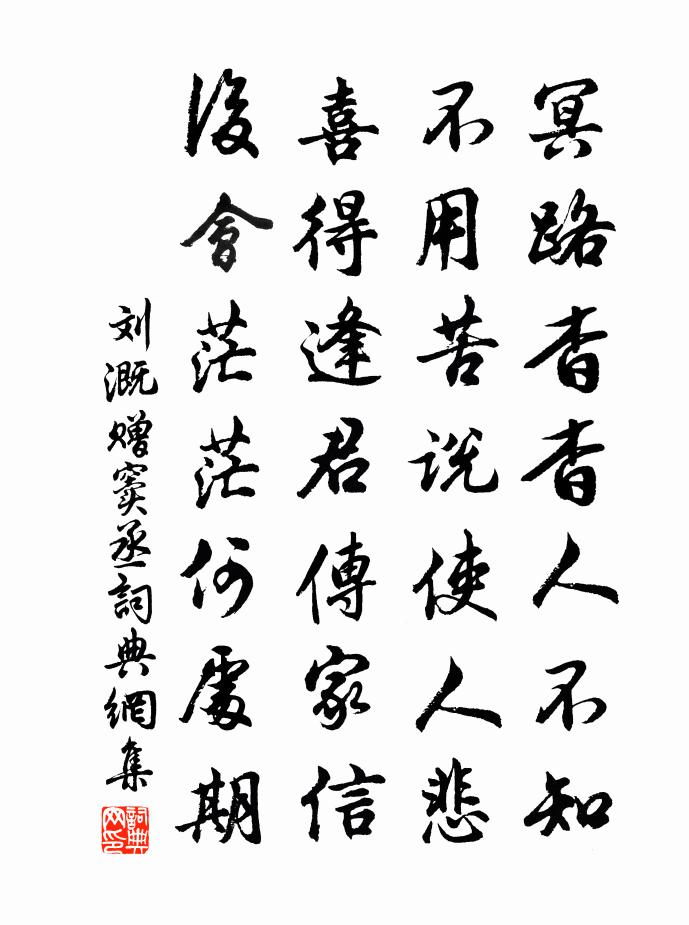 冥路杳杳人不知
不用苦說使人悲
喜得逢君傳家信
後會茫茫何處期
刘溉赠窦丞詞典網集
詞典网印